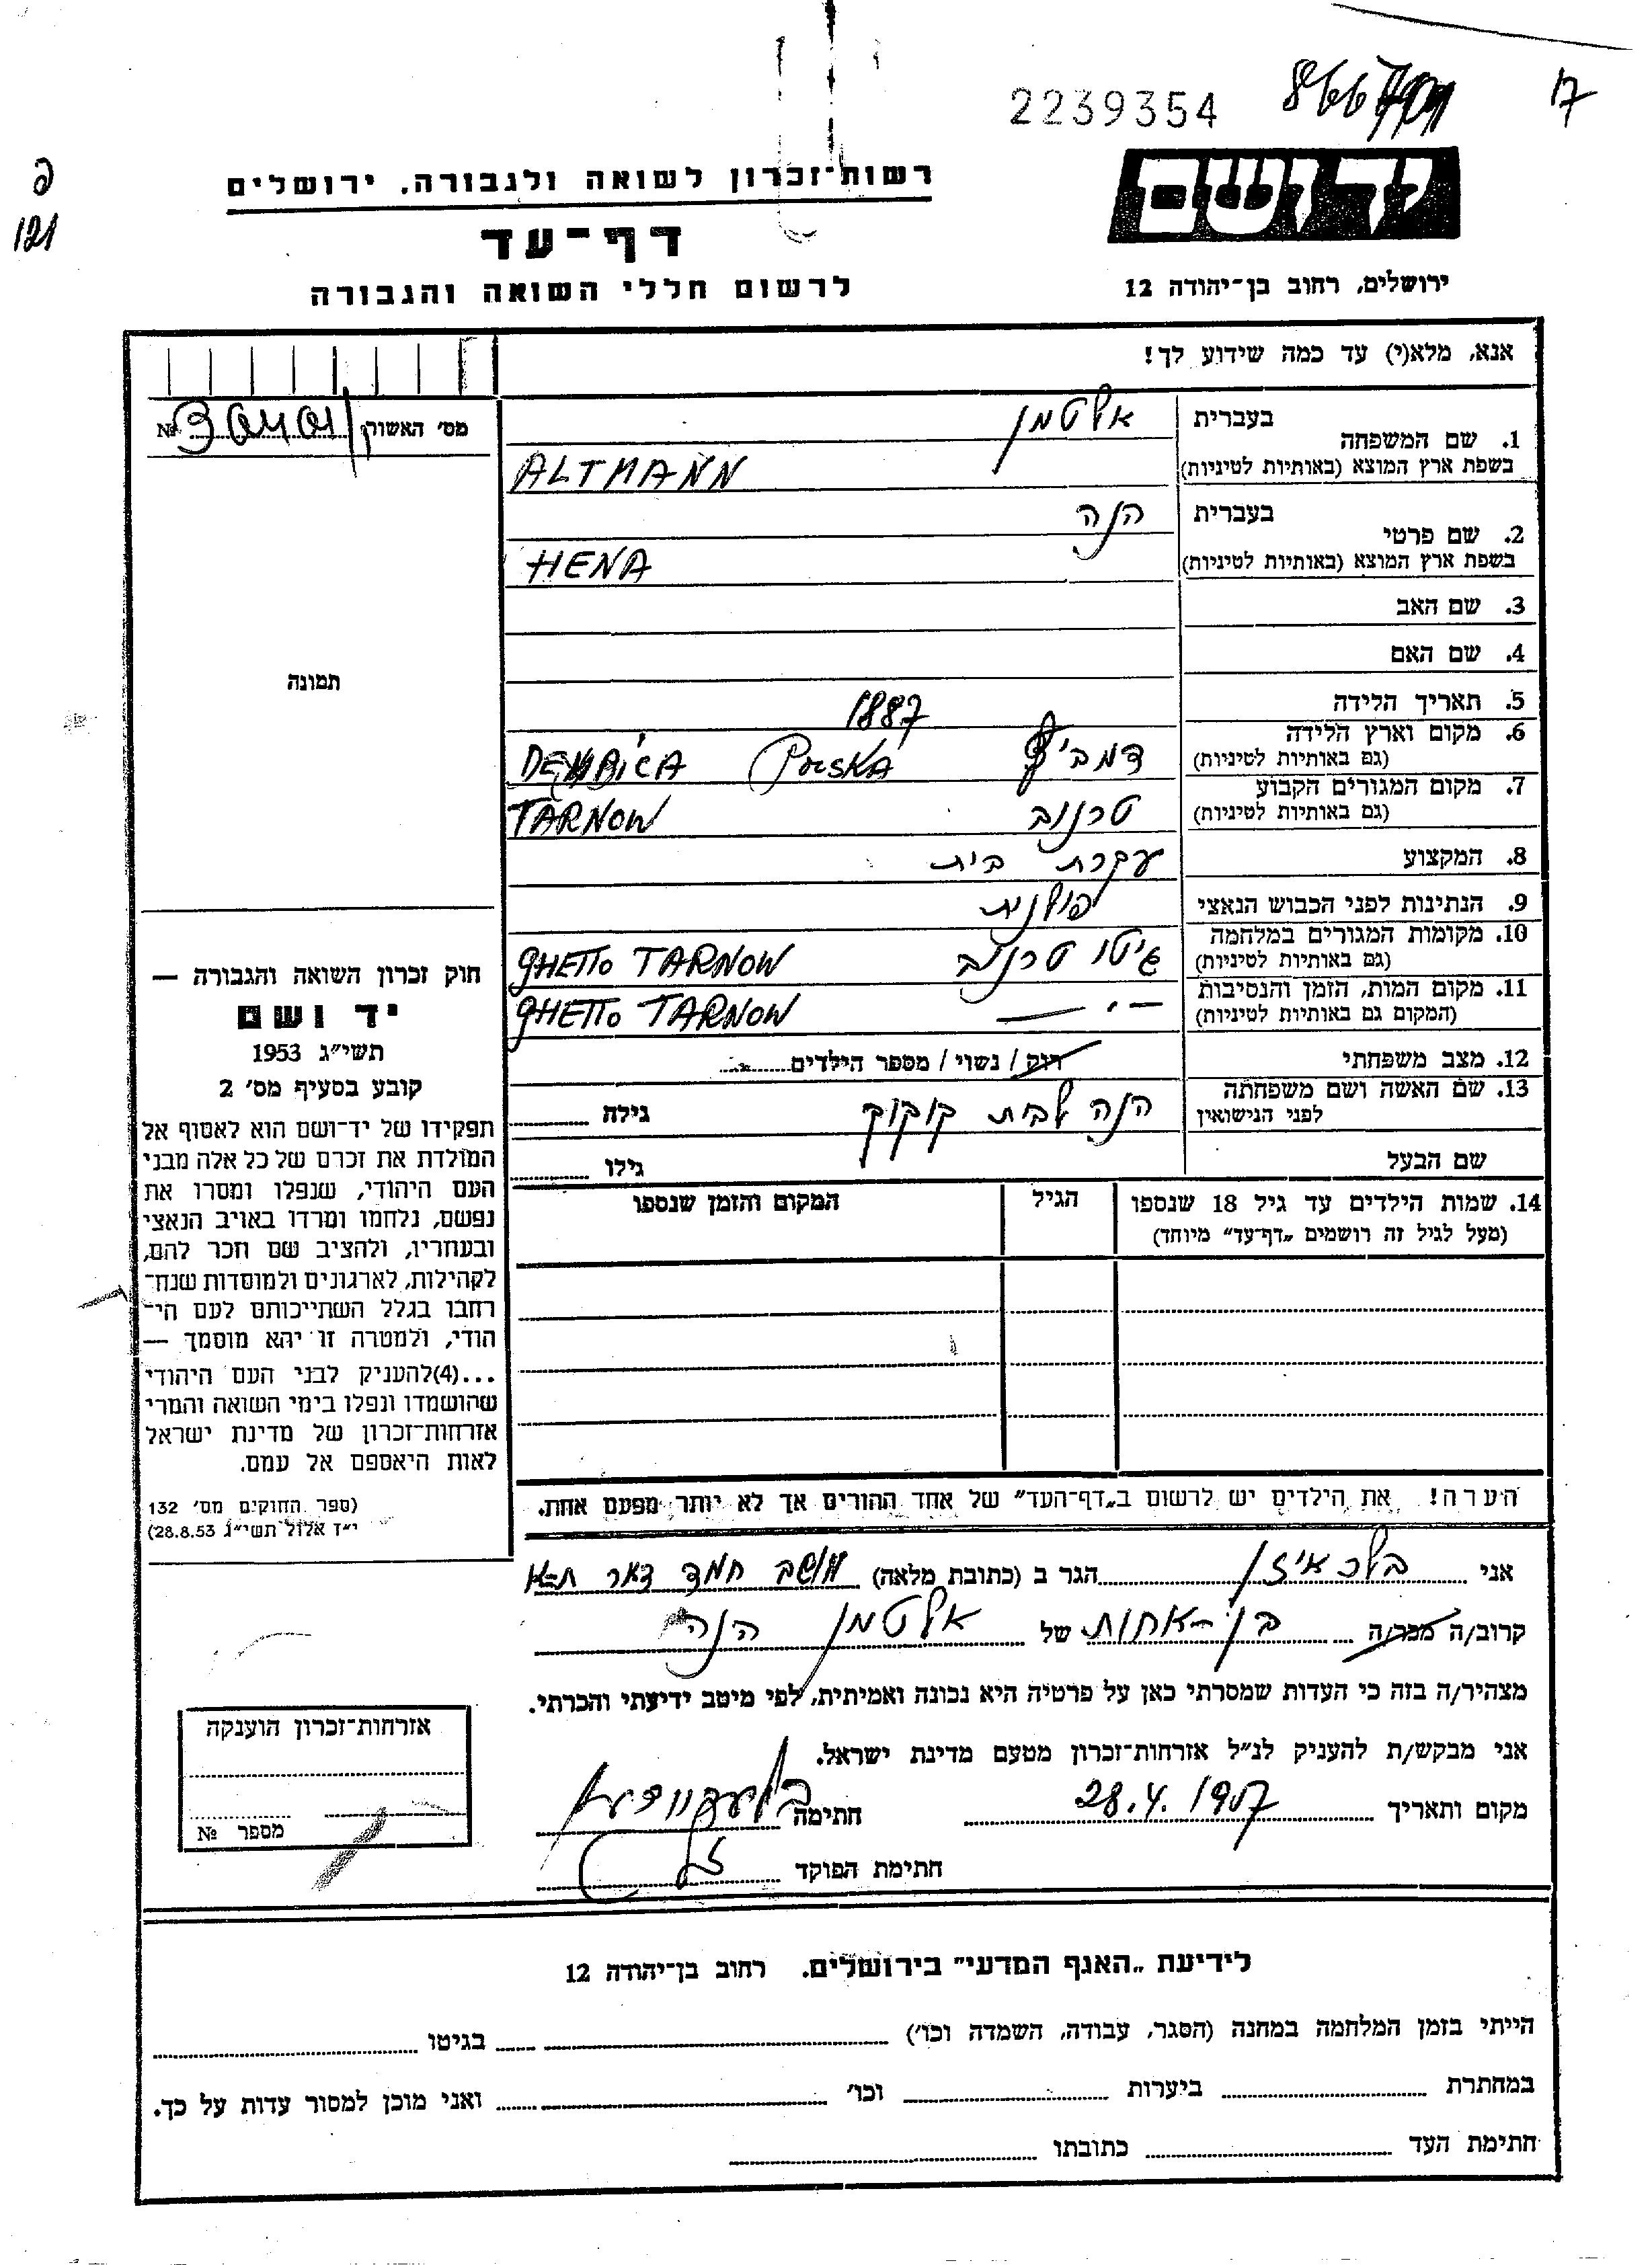 2239354
17
רשות־זכרון לשואה ולגבורה, ירושלים
יד ושם
דף־עד
121
לרשום חללי השואה והגבורה
ירושלים, רחוב בן־יהודה 12
אנא, מלא(י) עד כמה שידוע לך!
מס׳ האשור
№
1. שם המשפחה
בעברית אלטמן
בשפת ארץ המוצא (באותיות לטיניות) ALTMANN
2. שם פרטי
בעברית הנה
בשפת ארץ המוצא (באותיות לטיניות) HENA
3. שם האב
4. שם האם
תמונה
5. תאריך הלידה 1887
6. מקום וארץ הלידה
(גם באותיות לטיניות) DEMBICA POLSKA
7. מקום המגורים הקבוע
(גם באותיות לטיניות) טרנוב TARNOW
8. המקצוע עקרת בית
9. הנתינות לפני הכבוש הנאצי פולנית
10. מקומות המגורים במלחמה
(גם באותיות לטיניות) גיטו טרנוב GHETTO TARNOW
11. מקום המות, הזמן והנסיבות
(המקום גם באותיות לטיניות) — · — GHETTO TARNOW
12. מצב משפחתי רוק / נשוי / מספר הילדים
13. שם האשה ושם משפחתה
לפני הנישואין הנה לבית גילה
שם הבעל גילו
14. שמות הילדים עד גיל 18 שנספו
(מעל לגיל זה רושמים „דף־עד״ מיוחד)
הגיל
המקום והזמן שנספו
חוק זכרון השואה והגבורה —
יד ושם
תשי״ג 1953
קובע בסעיף מס׳ 2
תפקידו של יד־ושם הוא לאסוף אל
המולדת את זכרם של כל אלה מבני
העם היהודי, שנפלו ומסרו את
נפשם, נלחמו ומרדו באויב הנאצי
ובעחריו, ולהציב שם חכר להם,
לקהילות, לארגונים ולמוסדות שנח־
רחבו בגלל השתייכותם לעם הי־
הודי, ולמטרה זו יהא מוסמך —
...(4)להעניק לבני העם היהודי
שהושמדו ונפלו בימי השואה והמרי
אזרחות־זכרון של מדינת ישראל
לאות היאספם אל עמם.
(ספר החוקים מס׳ 132
י״ד אלול תשי״ג 28.8.53)
הערה! את הילדים יש לרשום ב„דף־העד״ של אחד ההורים אך לא יותר מפעם אחת.
אני הגר ב (כתובת מלאה) מושב חמד דאר ת־א
קרוב/ה מכר/ה בן־אחות של אלטמן הנה
מצהיר/ה בזה כי העדות שמסרתי כאן על פרטיה היא נכונה ואמיתית, לפי מיטב ידיעתי והכרתי.
אני מבקש/ת להעניק לנ״ל אזרחות־זכרון מטעם מדינת ישראל.
מקום ותאריך 28.4.1957 חתימה
חתימת הפוקד
אזרחות־זכרון הוענקה
מספר №
לידיעת „האגף המדעי״ בירושלים. רחוב בן־יהודה 12
הייתי בזמן המלחמה במחנה (הסגר, עבודה, השמדה וכו׳) בגיטו
במחתרת ביערות וכו׳ ואני מוכן למסור עדות על כך.
חתימת העד כתובתו